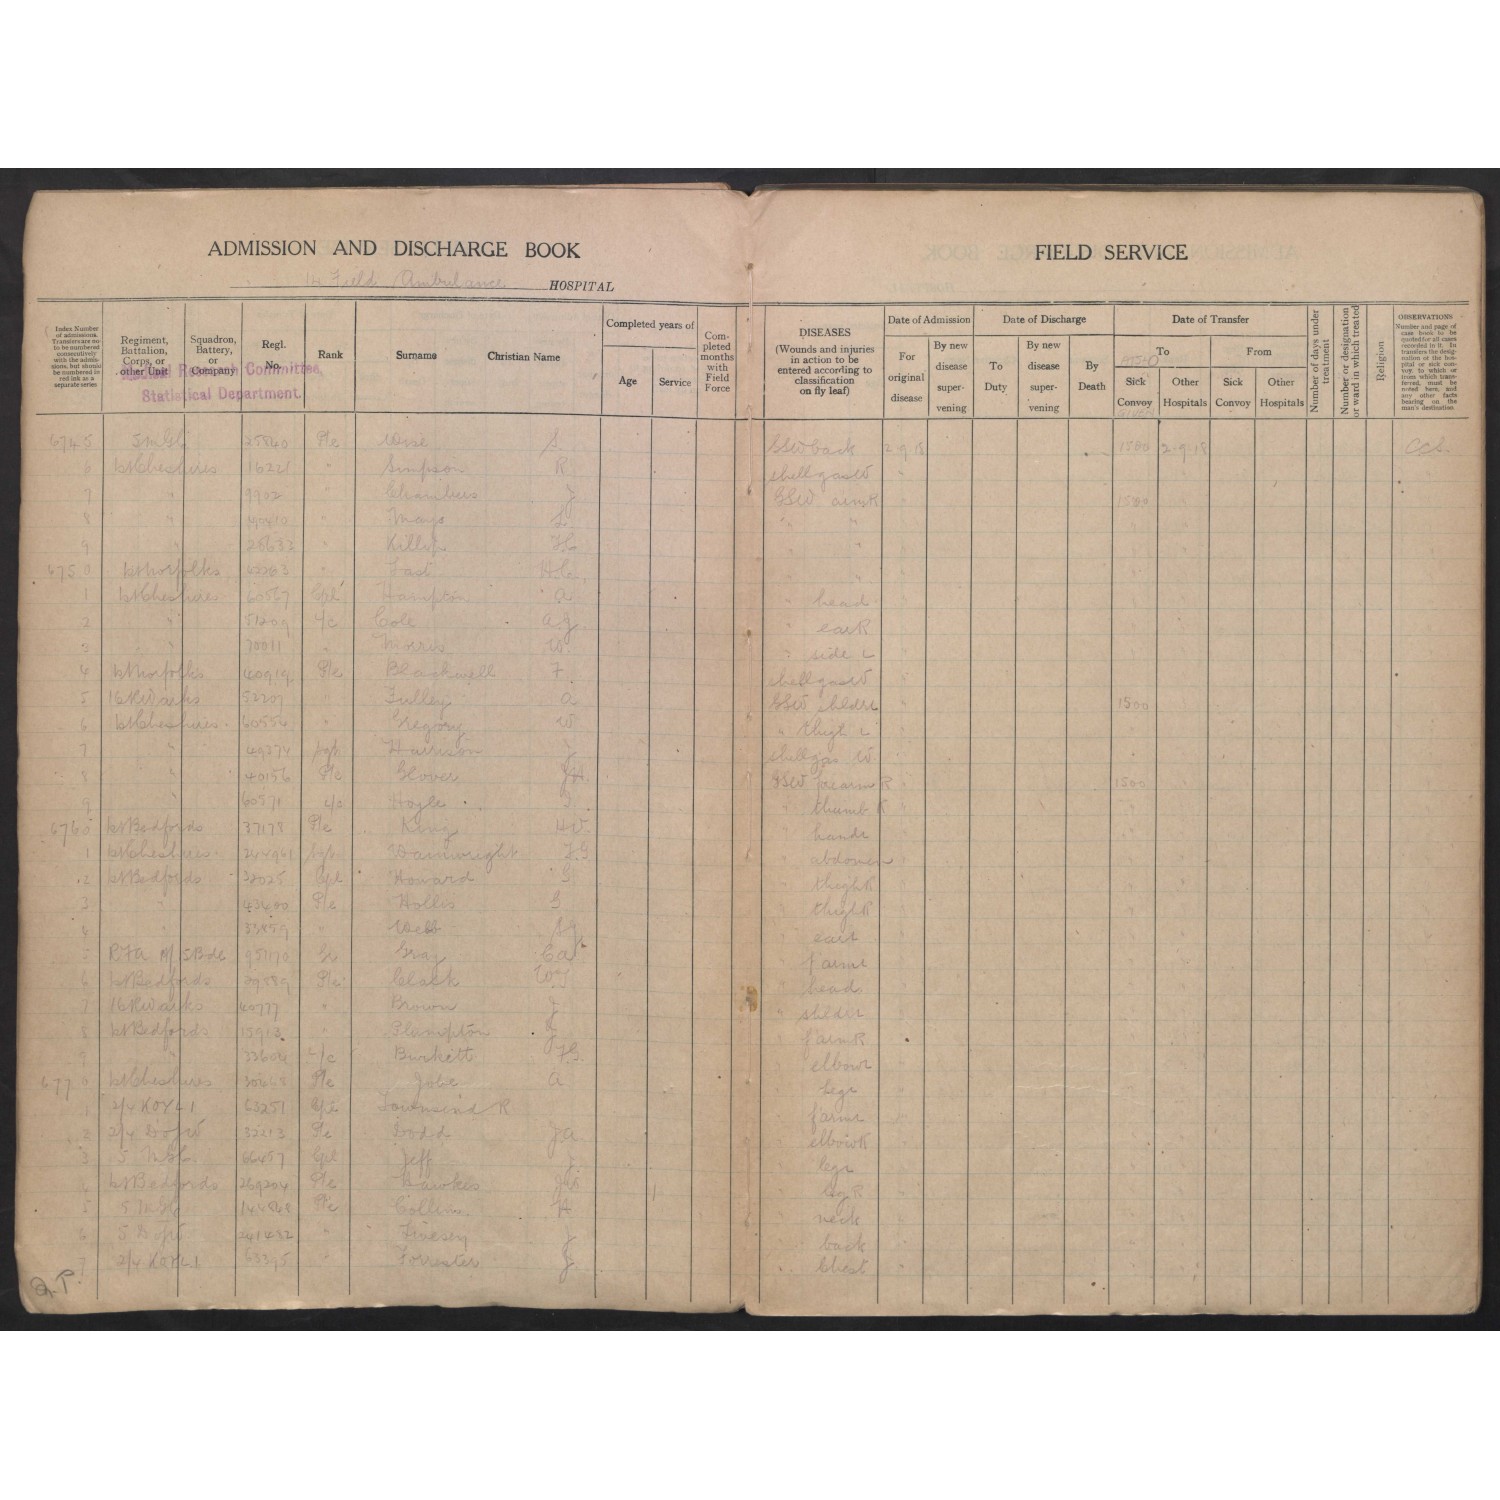 ADMISSION AND DISCHARGE BOOK
FIELD SERVICE
14 Field Ambulance HOSPITAL
Index Number of admissions. Transfers are not to be numbered consecutively with the admissions, but should be numbered in red ink as a separate series
Regiment, Battalion, Corps, or other Unit
Squadron, Battery, or Company
Regl. No.
Rank
Surname
Christian Name
Completed years of
Age
Service
Completed months with Field Force
DISEASES
(Wounds and injuries in action to be entered according to classification on fly leaf)
Date of Admission
For original disease
By new disease supervening
Date of Discharge
To Duty
By new disease supervening
By Death
Date of Transfer
To
From
Sick Convoy
Other Hospitals
Sick Convoy
Other Hospitals
Number of days under treatment
Number or designation or ward in which treated
Religion
OBSERVATIONS
Number and page of case book to be quoted for all cases recorded in it. In transfers the designation of the hospital or sick convoy, to which or from which transferred, must be noted here, and any other facts bearing on the man's destination.
Research Committee,
Statistical Department.
6745 5 MGC 25840 Pte Wise S. GSW back 2-9-18 1500 2-9-18 CCS.
6 1st Cheshires 16221 " Simpson R shell gas W "
7 " 9902 " Chambers J GSW arm R " 1500
8 " " Mays L " "
9 " 28632 " Killip H " "
6750 1st Norfolks 62263 " Last H.C. " "
1 1st Cheshires 60567 Cpl Hampson A " head
2 " 51209 L/c Cole A.J. " ear R
3 " 70011 " Morris W. " side L
4 1st Norfolks 40919 Pte Blackwell F. shell gas W
5 16 R Warks 52207 " Fulley A GSW shldr L 1500
6 1st Cheshires 60554 " Gregory W " thigh L
7 " 49274 Sgt Harrison J shell gas W.
8 " 40156 Pte Glover J.H. GSW forearm R 1500
9 " 60571 L/c Hoyle J. " thumb R
6760 1st Bedfords 37178 Pte King H.W. " hand L
1 1st Cheshires 244961 Sgt Wainwright F.G " abdomen
2 1st Bedfords 32025 Cpl Howard G. " thigh R
3 " 43400 Pte Hollis G " thigh R
4 " 33859 " Webb " ear L
5 RFA 5 Bde 951170 Gr Gray C A " farm L
6 1st Bedfords 29589 Pte Clack W.J " head
7 16 R Warks 40777 " Brown J. " shldr L
8 1st Bedfords 15913 " Plumpton J. " farm R
9 " 33604 L/c Burkett F.G. " elbow L
6770 1st Cheshires Pte Jobe A " leg L
1 2/4 KOYLI 63251 Cpl Townsend R " farm L
2 2/4 Do 32213 Pte Dodd J A " elbow R
3 5 MGC. 66457 Cpl Jeff J. " leg L
4 1st Bedfords 269204 Pte Hawkes " leg R
5 5 MGC 144868 Pte Collins H " neck
6 5 Do 241482 " Livesey J " back
7 2/4 KOYLI 63395 " Forrester J. " chest